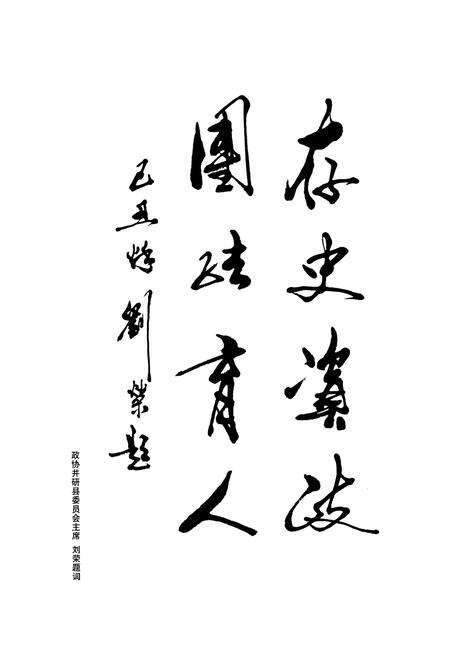 存史资政
團结育人
己丑烽劉榮题
政协井研县委员会主席 刘荣题词